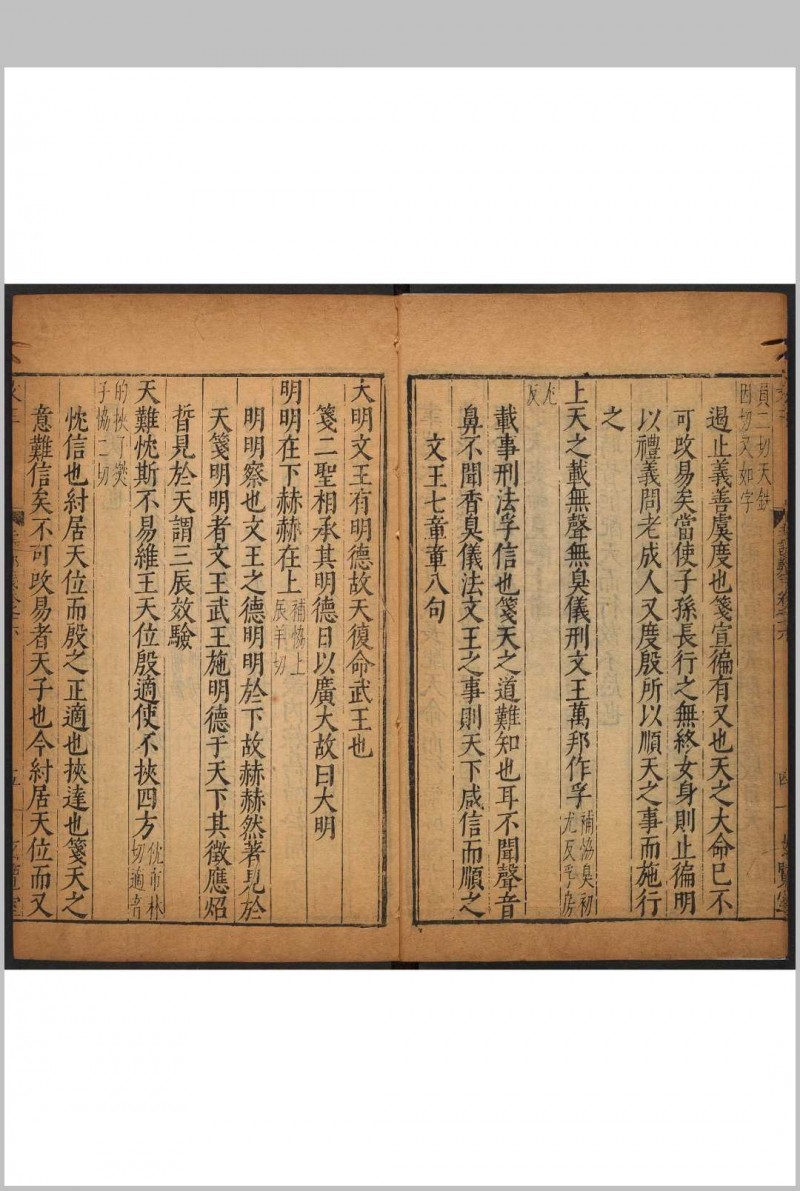 員二切天鉄
因切又如字
遏止義善虞度也箋宣徧有又也天之大命已不
可攺易矣當使子孫長行之無終女身則止徧明
以禮義問老成人又度殷所以順天之事而施行
之
上天之載無聲無臭儀刑文王萬邦作孚補協臭初尤反孚房
尤
反
載事刑法孚信也箋天之道難知也耳不聞聲音
鼻不聞香臭儀法文王之事則天下咸信而順之
文王七章章八句
大明文王有明德故天復命武王也
箋二聖相承其明德日以廣大故曰大明
明明在下赫赫在上補協上辰羊切
明明察也文王之德明明於下故赫赫然著見於
天箋明明者文王武王施明德于天下其徵應炤
晢見於天謂三辰效驗
天難忱斯不易維王天位殷適使不挾四方忱市林切適音
的挾了燮
子協二切
忱信也紂居天位而殷之正適也挾達也箋天之
意難信矣不可攺易者天子也今紂居天位而又